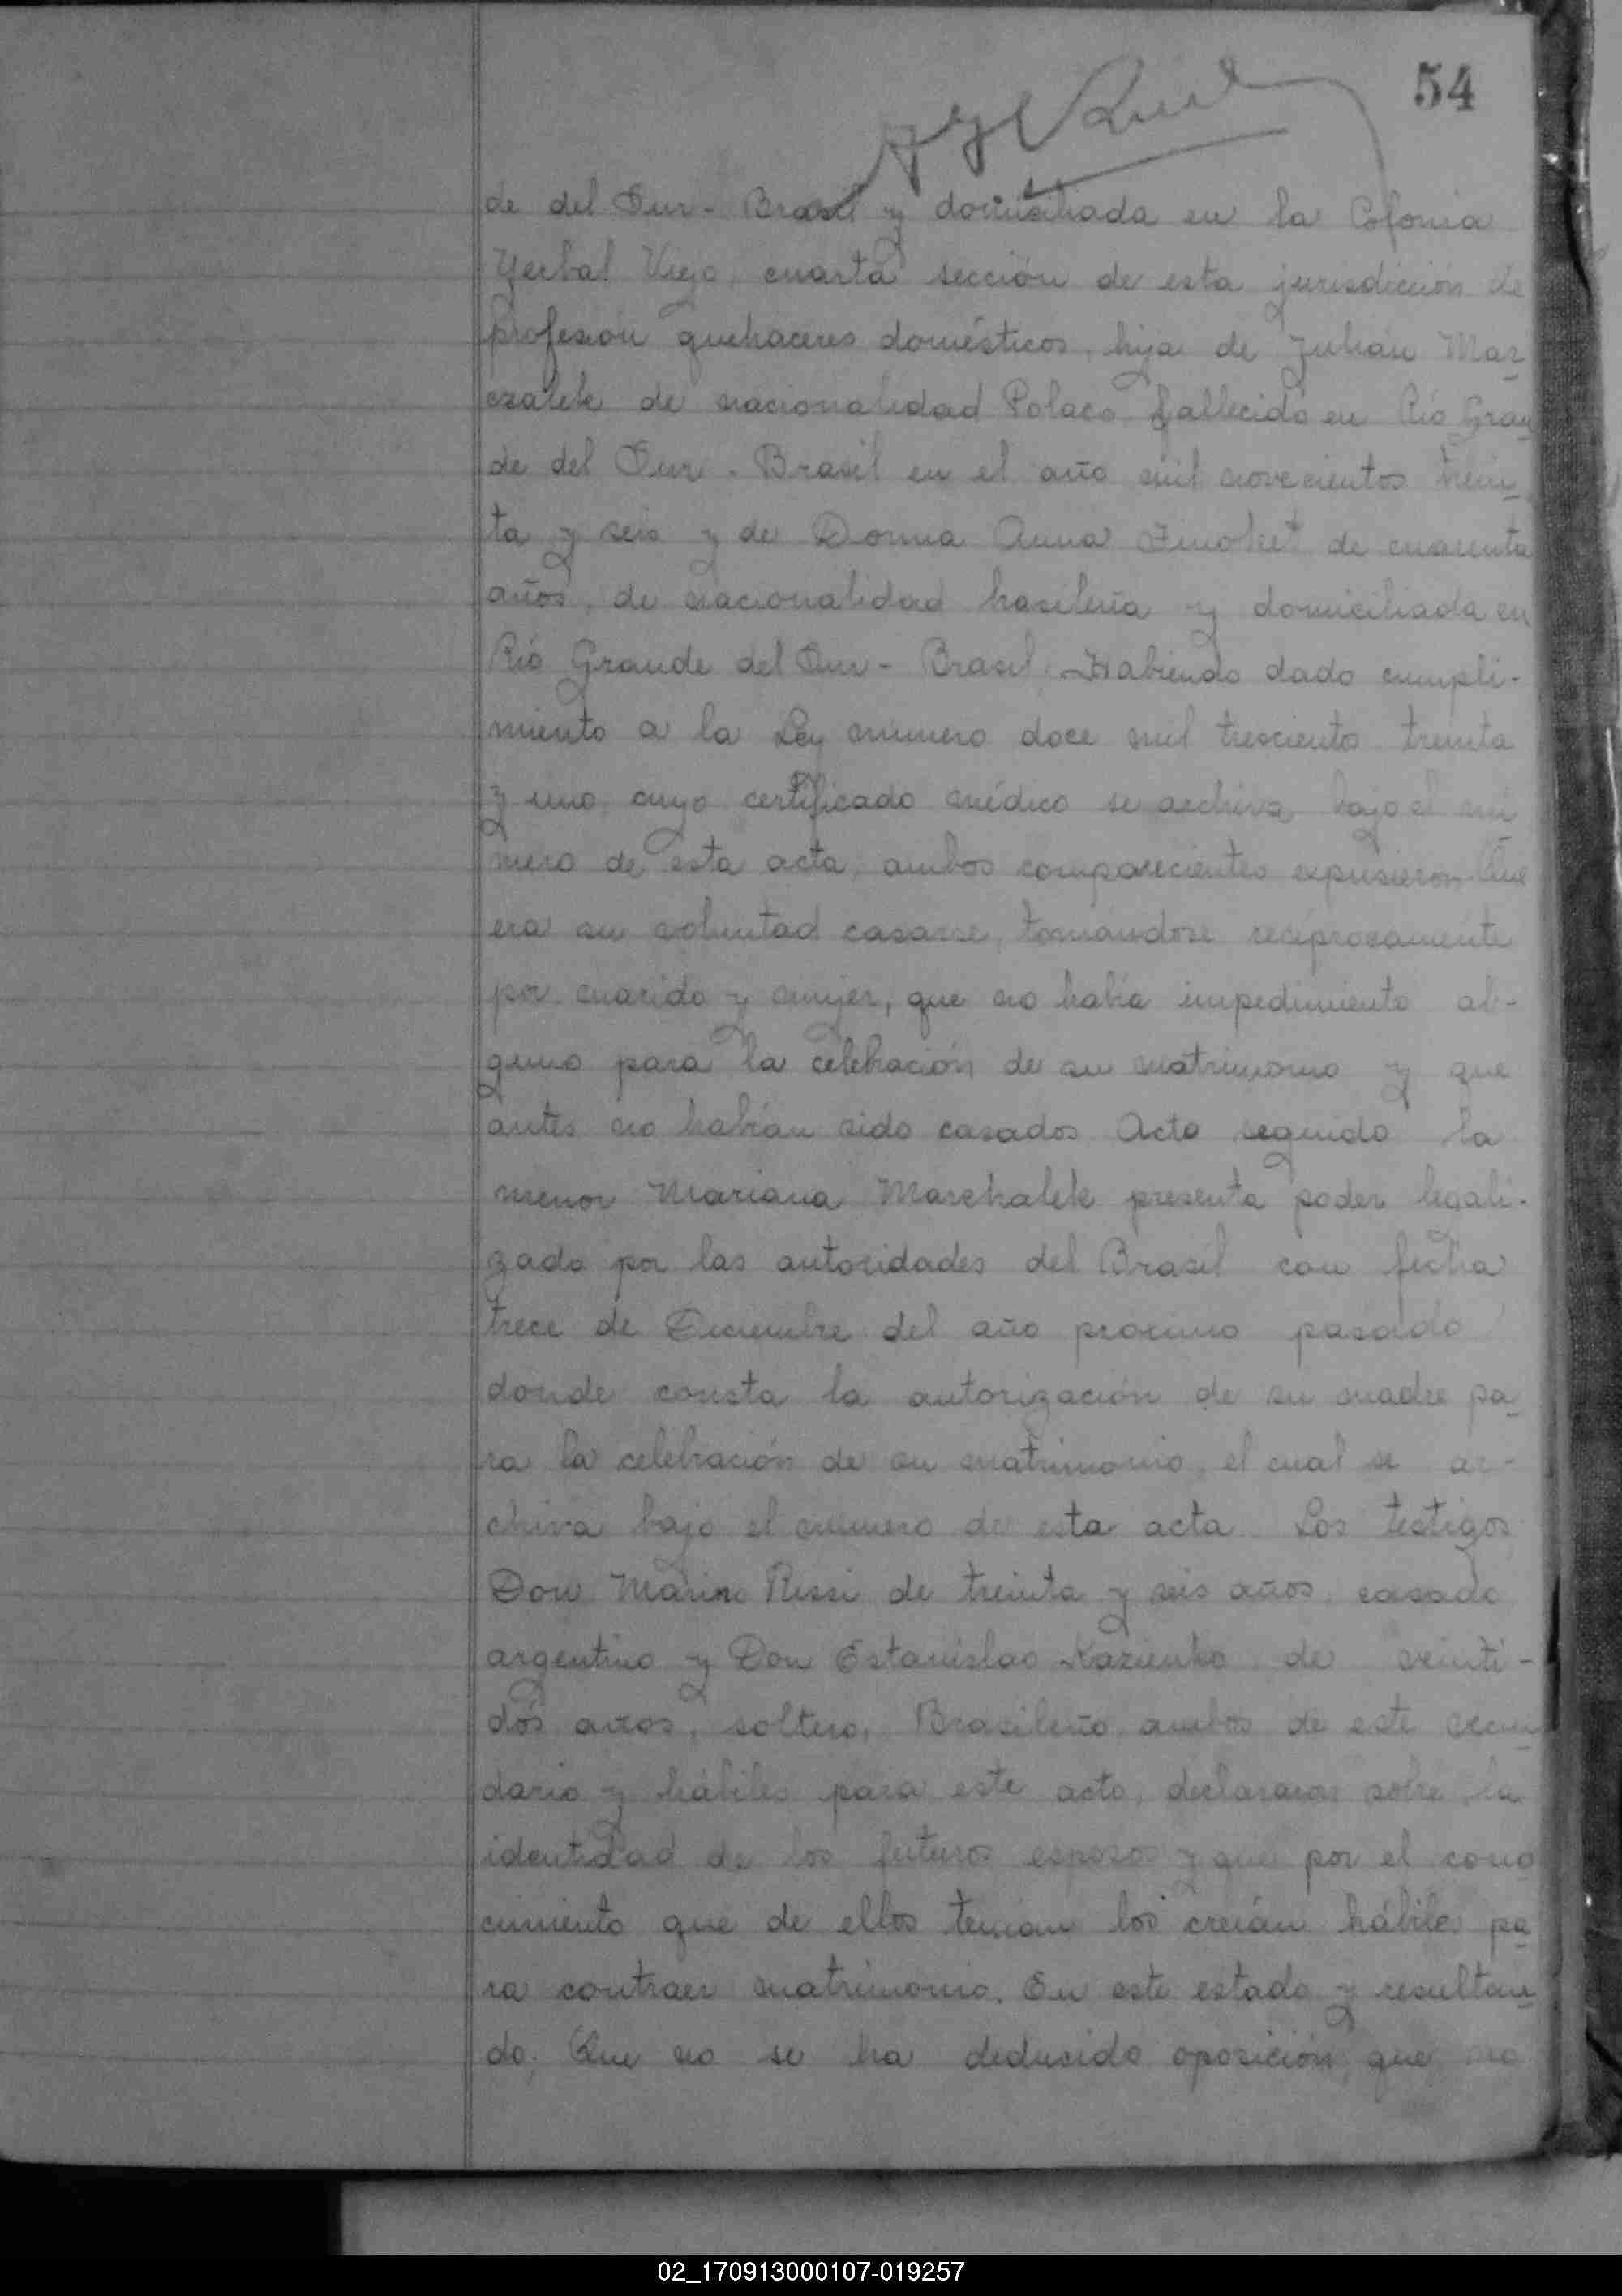 54
de del Sur - Brasil y domiciliada en la Colonia
Yerbal Viejo, cuarta sección de esta jurisdicción de
profesión quehaceres domésticos, hija de Julián Mar
czalek de nacionalidad Polaco fallecido en Río Gran
de del Sur - Brasil en el año mil novecientos trein
ta y seis y de Donna Anna de cuarenta
años, de nacionalidad brasileña y domiciliada en
Río Grande del Sur - Brasil. Habiendo dado cumpli-
miento a la Ley número doce mil trescientos treinta
y uno, cuyo certificado médico se archiva bajo el nú
mero de esta acta, ambos comparecientes expusieron: Que
era su voluntad casarse, tomándose recíprocamente
por marido y mujer, que no había impedimiento al-
guno para la celebración de su matrimonio y que
antes no habían sido casados. Acto seguido la
menor Mariana Marchalek presenta poder legali-
zado por las autoridades del Brasil con fecha
trece de Diciembre del año próximo pasado
donde consta la autorización de su madre pa
ra la celebración de su matrimonio, el cual se ar-
chiva bajo el número de esta acta. Los testigos
Don Marino Rissi de treinta y seis años, casado
argentino y Don Estanislao Kazienko de veinti-
dós años, soltero, Brasileño, ambos de este vecin
dario y hábiles para este acto, declararon sobre la
identidad de los futuros esposos y que por el cono
cimiento que de ellos tenían los creían hábiles pa
ra contraer matrimonio. En este estado y resultan
do; Que no se ha deducido oposición, que no
02_170913000107-019257